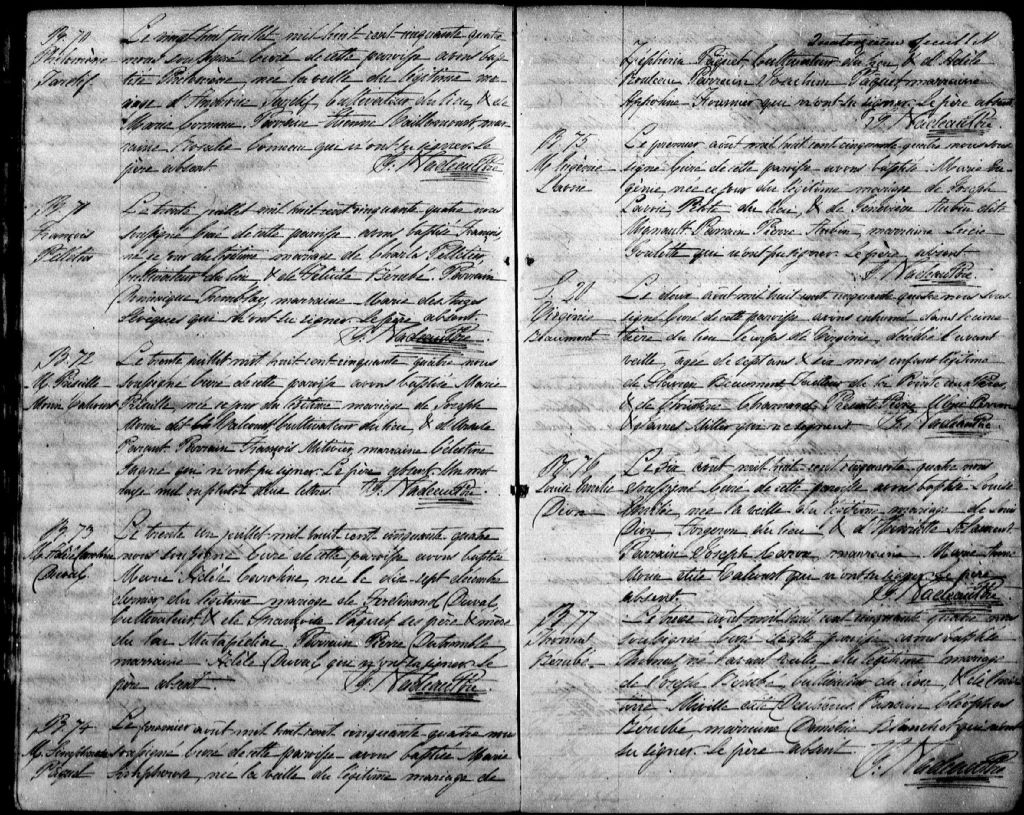 B. 70
Philomène
Tardif
Le vingt huit juillet mil huit cent cinquante quatre
nous soussigné Curé de cette paroisse avons bap
tisé Philomène née la veille du légitime ma
riage d' Tardif, Cultivateur du lieu, & de
Marie Comeau. Parrain Etienne mar
raine Rosalie Comeau qui n'ont su signer. Le
père absent. J. Nadeau Ptre
B. 71
François
Pelletier
Le trente juillet mil huit cent cinquante quatre nous
soussigné Curé de cette paroisse avons baptisé François,
né ce jour du légitime mariage de Charles Pelletier,
cultivateur du lieu & de Félicité Bérubé. Parrain
Dominique Tremblay, marraine Marie des Anges
qui n'ont su signer. Le père absent.
J. Nadeau Ptre
B. 72
M. Priscille
Morin Valcourt
Le trente juillet mil huit cent cinquante quatre nous
soussigné Curé de cette paroisse avons baptisé Marie
Priscille, née ce jour du légitime mariage de Joseph
Morin dit Valcourt, cultivateur du lieu, & d'Ursule
Parent. Parrain François marraine Célestine
Gagné qui n'ont pu signer. Le père absent. Un mot
rayé nul ou plutôt deux lettres. J. Nadeau Ptre
B. 73
M. Adèle Caroline
Duval
Le trente un juillet mil huit cent cinquante quatre
nous soussigné Curé de cette paroisse avons baptisé
Marie Adèle Caroline, née le dix sept décembre
dernier du légitime mariage de Ferdinand Duval,
cultivateur, & de Françoise Paquet ses père & mère
du Lac Matapédiac. Parrain Pierre
marraine Adèle Duval qui n'ont su signer. Le
père absent. J. Nadeau Ptre
B. 74
M. Simphorose
Paquet
Le premier août mil huit cent cinquante quatre nous
soussigné Curé de cette paroisse avons baptisé Marie
Simphorose, née la veille du légitime mariage de
Quatorzième feuillet
Zéphirin Paquet cultivateur du lieu & d'Adèle
Rouleau. Parrain Paquet, marraine
Appoline Fournier qui n'ont su signer. Le père absent
J. Nadeau Ptre
B. 75
M. Eugénie
Lavoie
Le premier août mil huit cent cinquante quatre nous sous
signé Curé de cette paroisse avons baptisé Marie Eu
génie née ce jour du légitime mariage de Joseph
Lavoie, du lieu, & de Geneviève Aubin dite
Mignault. Parrain Pierre Aubin, marraine Lucie
qui n'ont pu signer. Le père absent.
J. Nadeau Ptre
S. 20
Virginie
Beaumont
Le deux août mil huit cent cinquante quatre nous sous
signé Curé de cette paroisse avons inhumé dans le cime
tière du lieu le corps de Virginie, décédée l'avant
veille, agée de sept ans & six mois enfant légitime
de Flavien Beaumont, de la Pointe aux Pères,
& de Christine Chouinard. Présents Pierre
& James Miller qui ne signent J. Nadeau Ptre
B. 76
Louise Emélie
Dion
Le six août mil huit cent cinquante quatre nous
soussigné Curé de cette paroisse avons baptisé Louise
Emélie née la veille du légitime mariage de Louis
Dion forgeron du lieu & d'Henriette St Laurent
Parrain Joseph Caron, marraine Marie Anne
Morin dite Valcourt qui n'ont su signer. Le père
absent. J. Nadeau Ptre
B. 77
Thomas
Bérubé
Le treize août mil huit cent cinquante quatre nous
soussigné Curé de cette paroisse avons baptisé
Thomas, né l'avant veille du légitime mariage
de Joseph Bérubé cultivateur du lieu, & de
dite Desrosiers. Parrain Cléophas
Bérubé, marraine Démérise Blanchet qui n'ont
su signer. Le père absent.
J. Nadeau Ptre